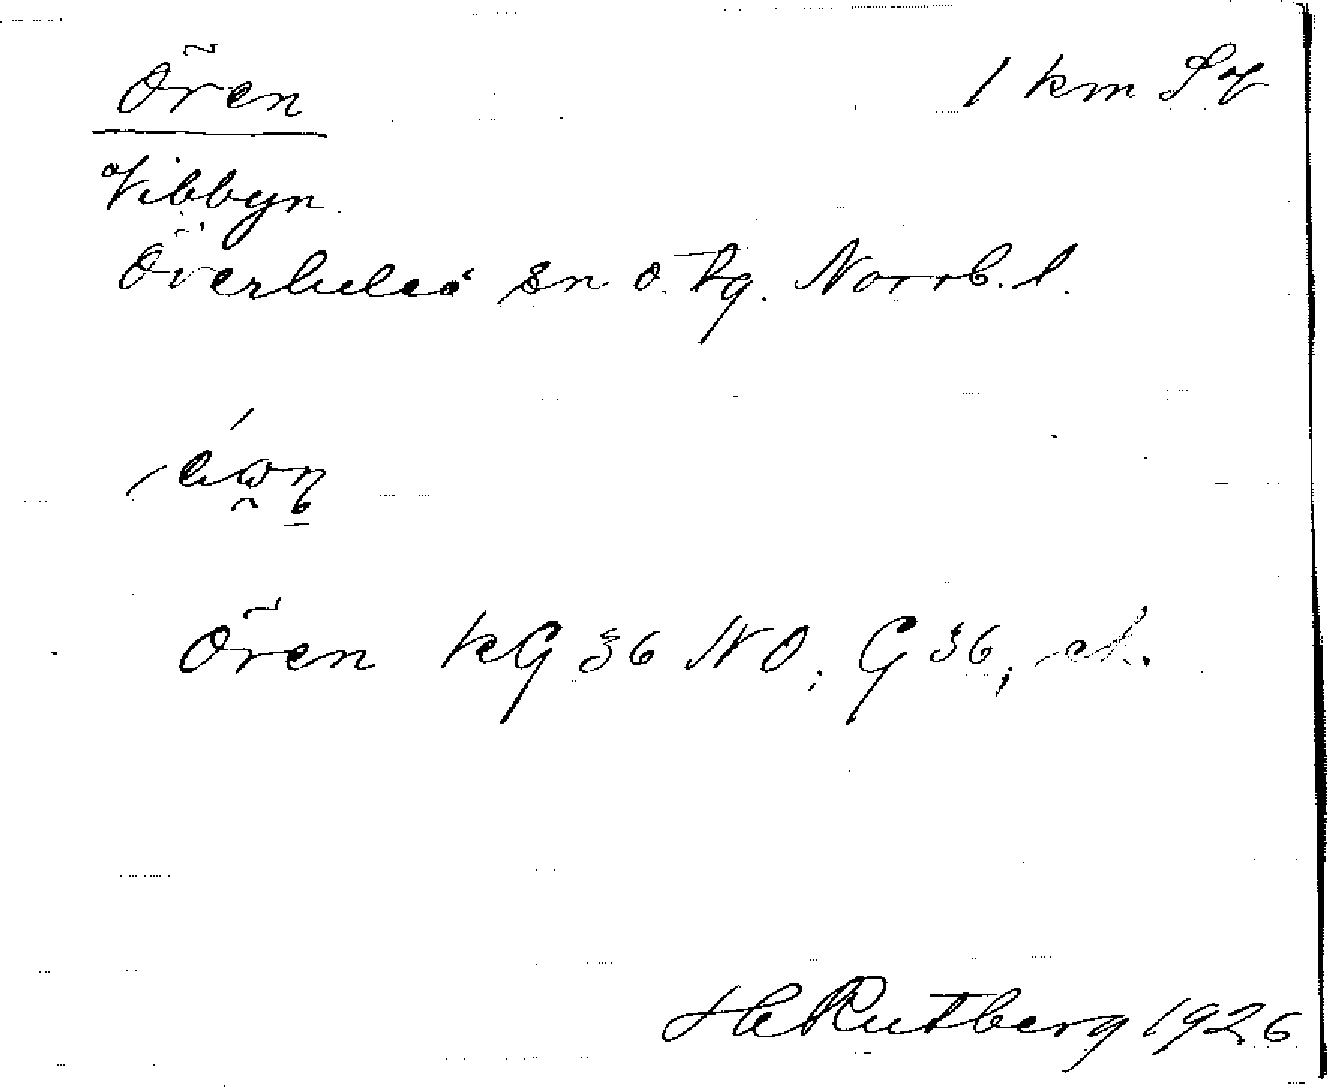 Ören 1 km SV
Vibbyn
Överluleå sn o. tg. Norrb. l.
Ören kG 36 NO, G 36,
H Rutberg 1926